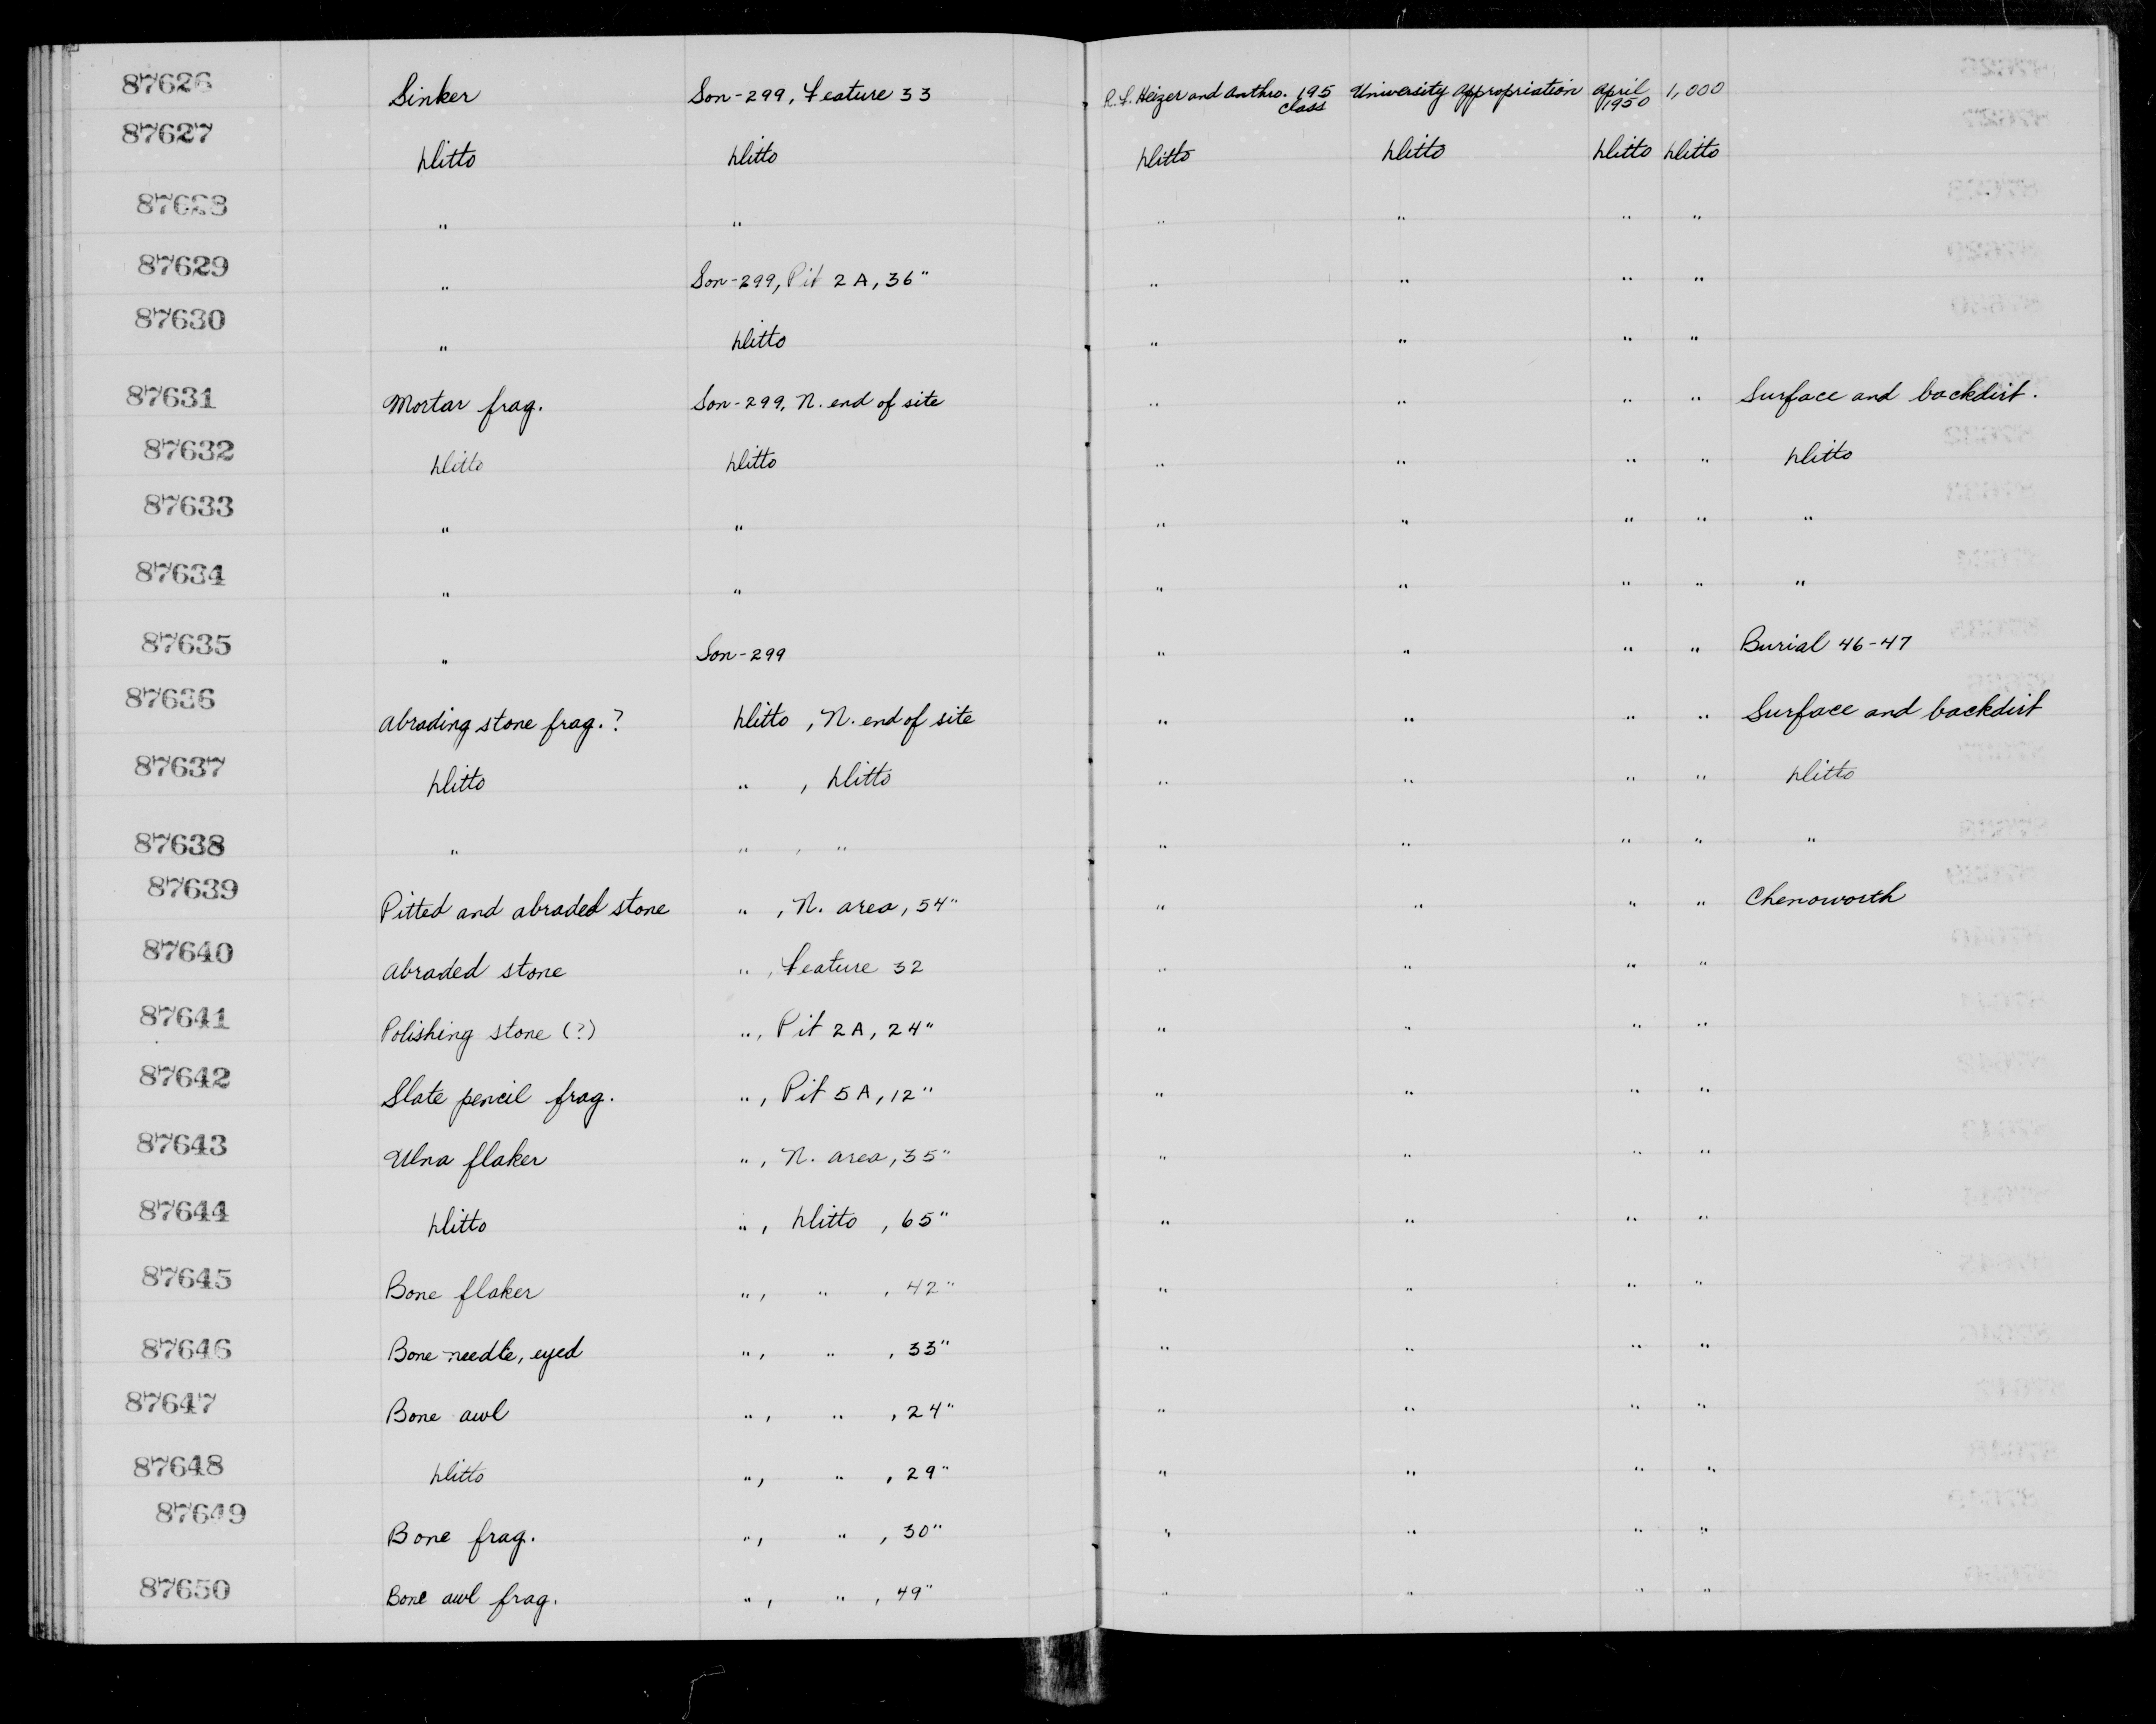 87626 Sinker Son-299, Feature 33 R.F. Heizer and Anthro. 195 class University Appropriation April 1950 1,000
87627 Ditto Ditto Ditto Ditto Ditto Ditto
87628 " " " " " "
87629 " Son-299, Pit 2A, 36" " " " "
87630 " Ditto " " " "
87631 Mortar frag. Son-299, N. end of site " " " " Surface and backdirt.
87632 Ditto Ditto " " " " Ditto
87633 " " " " " " "
87634 " " " " " " "
87635 " Son-299 " " " " Burial 46-47
87636 Abrading stone frag.? Ditto, N. end of site " " " " Surface and backdirt
87637 Ditto ", Ditto " " " " Ditto
87638 " ", " " " " " "
87639 Pitted and abraded stone ", N. area, 54" " " " " Chenoworth
87640 Abraded stone ", Feature 32 " " " "
87641 Polishing stone (?) ", Pit 2A, 24" " " " "
87642 Slate pencil frag. ", Pit 5A, 12" " " " "
87643 Ulna flaker ", N. area, 35" " " " "
87644 Ditto ", Ditto, 65" " " " "
87645 Bone flaker ", ", 42" " " " "
87646 Bone needle, eyed ", ", 33" " " " "
87647 Bone awl ", ", 24" " " " "
87648 Ditto ", ", 29" " " " "
87649 Bone frag. ", ", 30" " " " "
87650 Bone awl frag. ", ", 49" " " " "